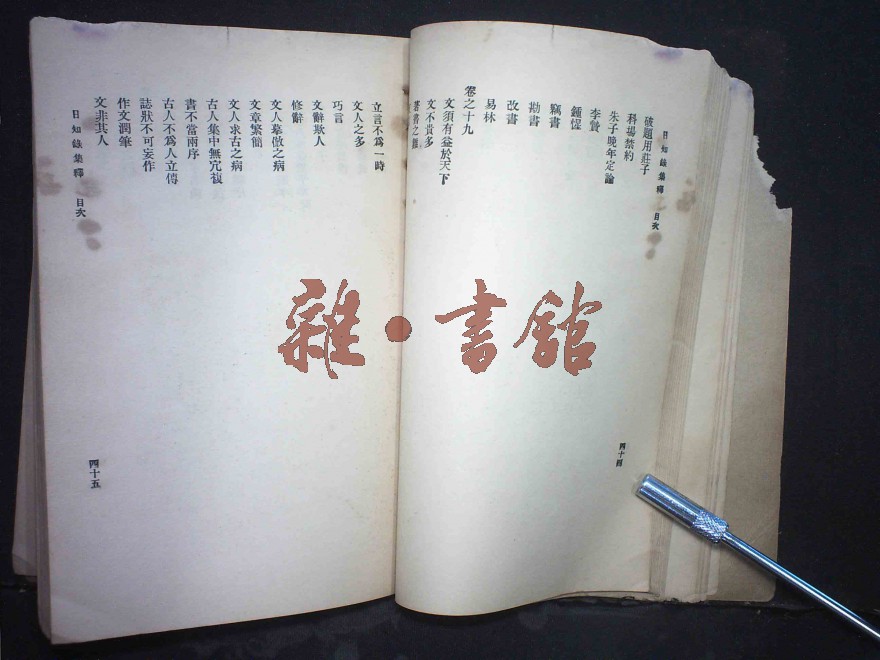 日知錄集釋 目次
破題用莊子
科場禁約
朱子晚年定論
李贄
鍾惺
竊書
勘書
改書
易林
卷之十九
文須有益於天下
文不貴多
著書之難
四十四
立言不爲一時
文人之多
巧言
文辭欺人
修辭
文人摹倣之病
文章繁簡
文人求古之病
古人集中無冗複
書不當兩序
古人不爲人立傳
誌狀不可妄作
作文潤筆
文非其人
日知錄集釋 目次
四十五
雜·書館